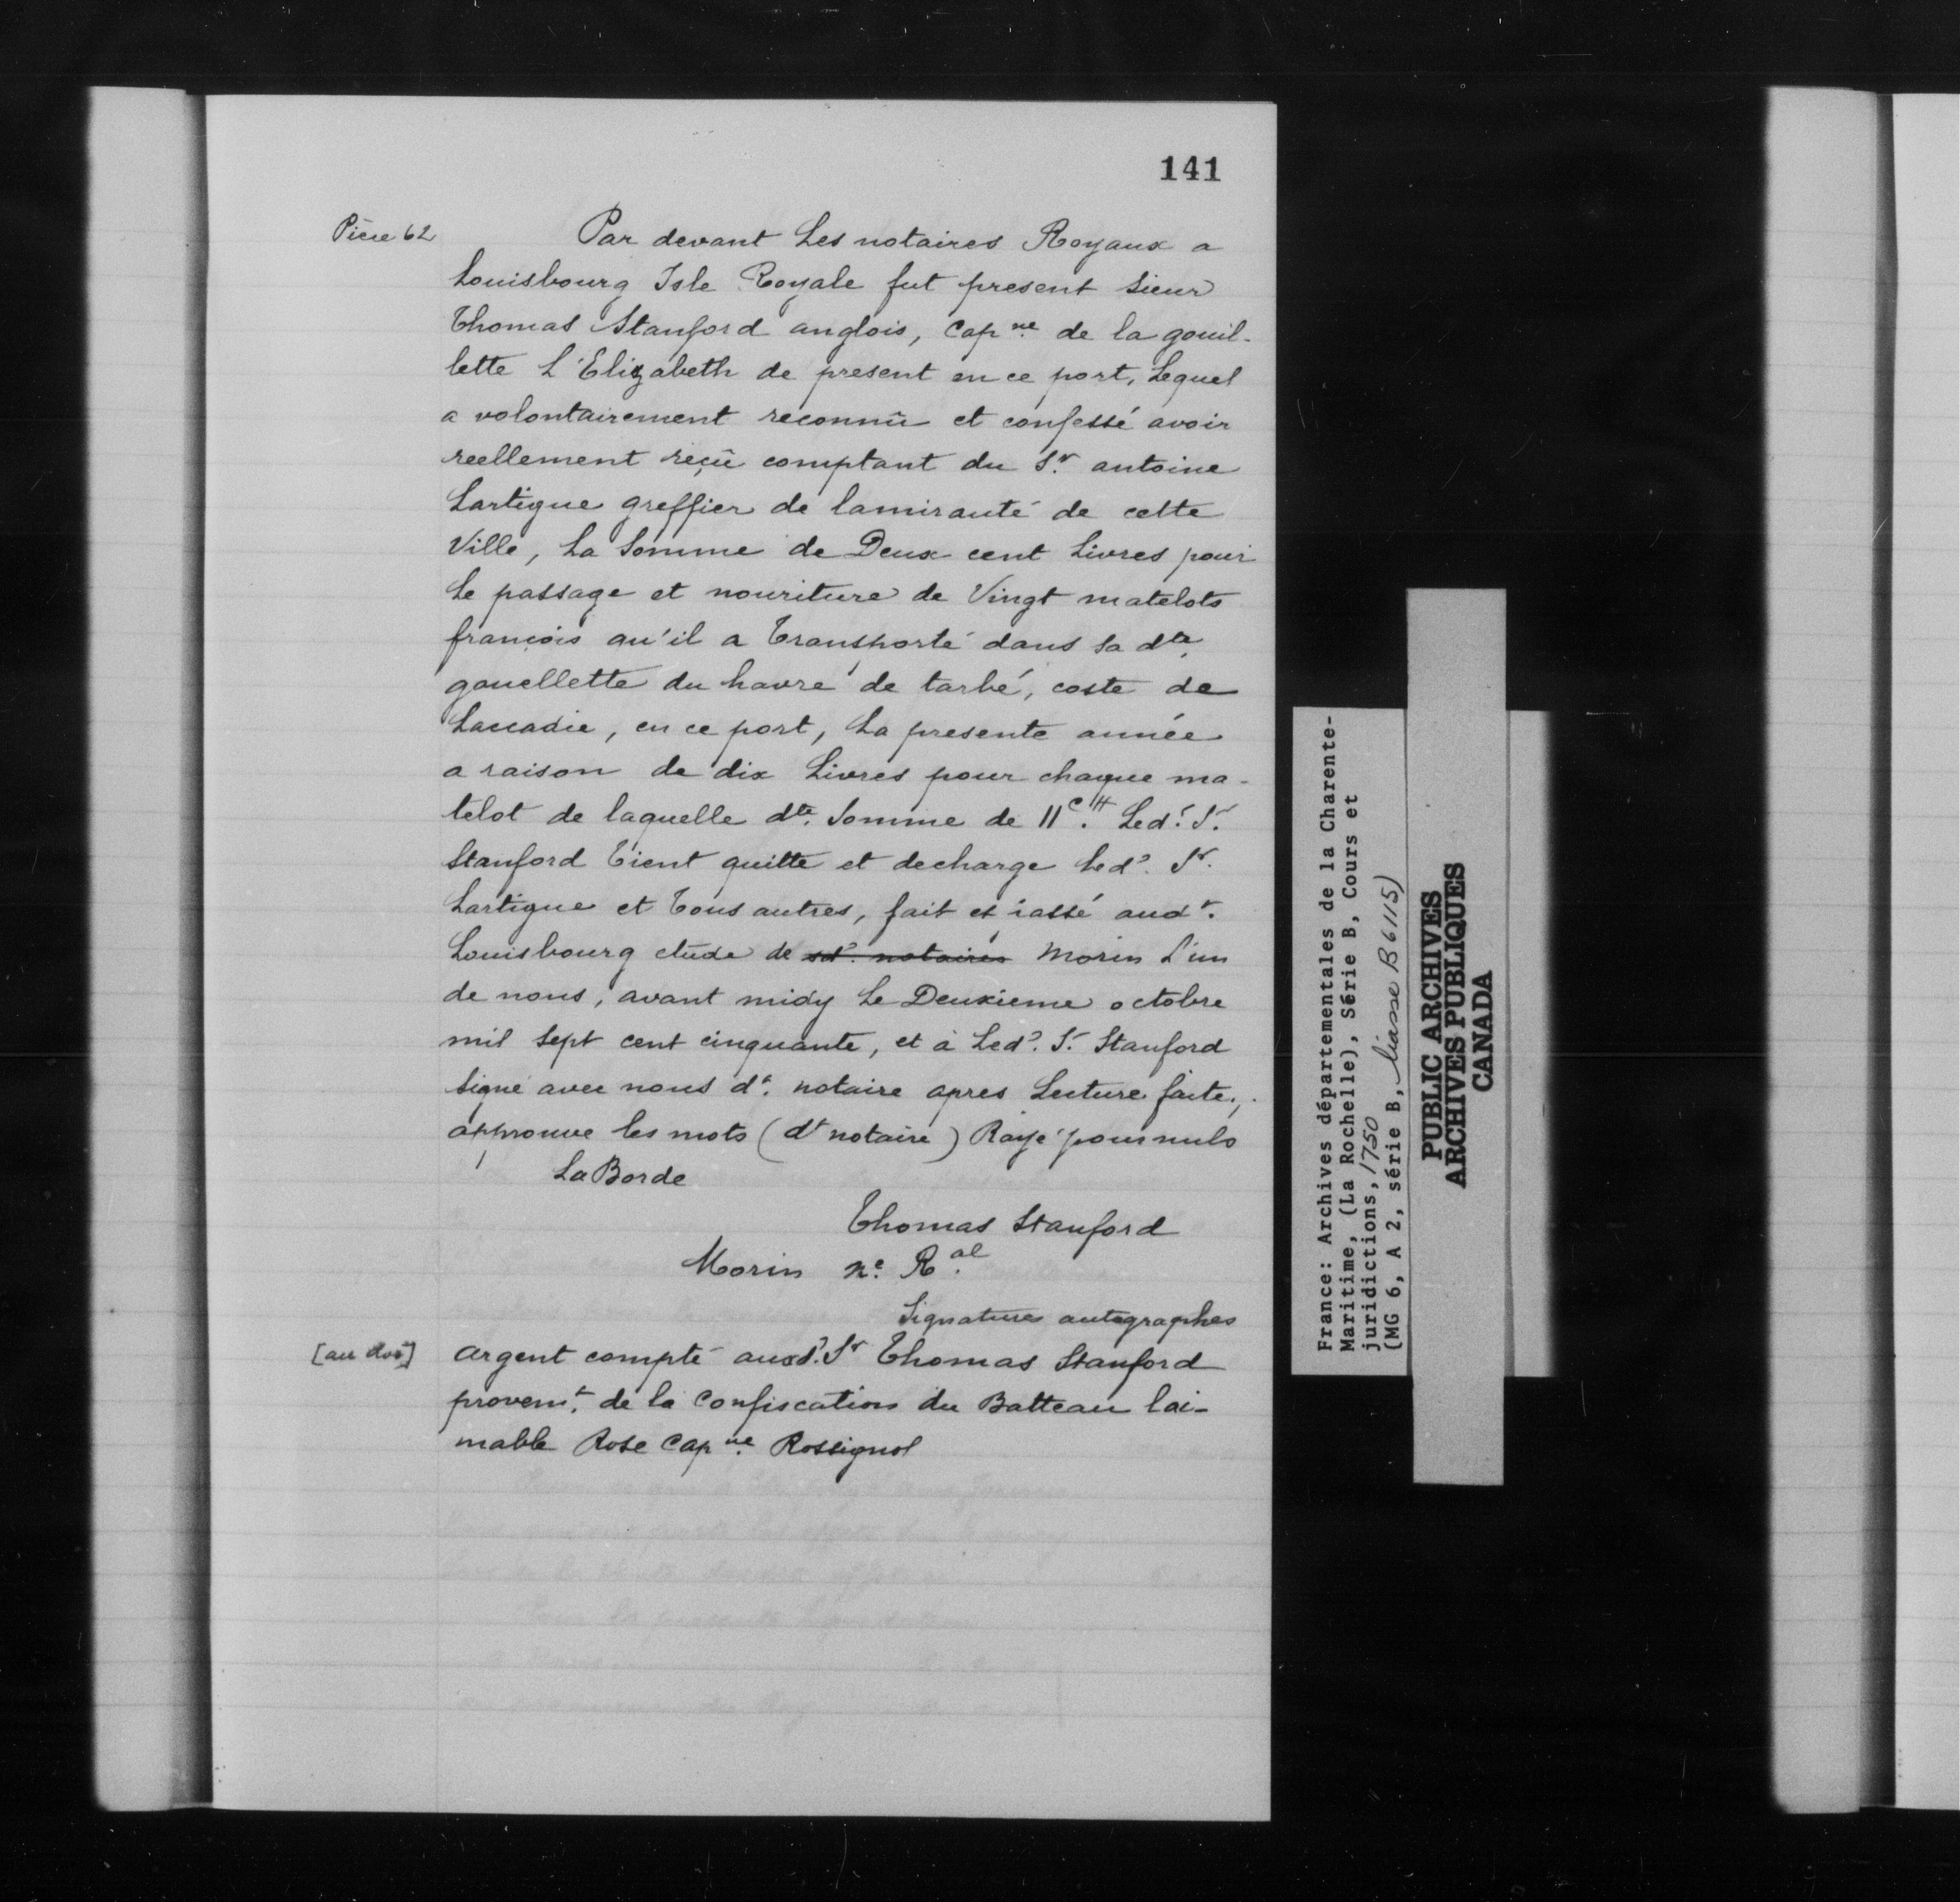 141
Pièce 62
Par devant Les notaires Royaux a
Louisbourg Isle Royale fut present Sieur
Thomas Stanford anglois, Cap.ne de la gouil-
lette L'Elizabeth de present en ce port, Lequel
a volontairement reconnû et confessé avoir
reellement reçû comptant du Sr. antoine
Lartigue greffier de lamirauté de cette
Ville, La Somme de Deux cent Livres pour
Le passage et nouriture de Vingt matelots
françois qu'il a Transporté dans sa dte.
gouellette du havre de tarbé, coste de
Laccadie, en ce port, La presente année
a raison de dix Livres pour chaque ma-
telot de laquelle dte. Somme de IIc.tt Led.t Sr.
Stanford Tient quitte et decharge Led.t Sr.
Lartigue et Tous autres, fait et passé aud.t
Louisbourg etude de sd.t notaires Morin L'un
de nous, avant midy Le Deuxieme octobre
mil Sept cent cinquante, et à Led.t Sr. Stanford
Signé avec nous d.t notaire apres Lecture faite.,.
approuve les mots (dt notaire) Rayé pour nuls
LaBorde
Thomas Stanford
Morin n.e R.al
Signatures autographes
[au dos]
Argent compté aud.t Sr Thomas Stanford
proven.t de la Confiscation du Batteau lai-
mable Rose Cap.ne Rossignol
France: Archives départementales de la Charente-
Maritime, (La Rochelle), Série B, Cours et
juridictions, 1750
(MG 6, A 2, série B, liasse B6115)
PUBLIC ARCHIVES
ARCHIVES PUBLIQUES
CANADA